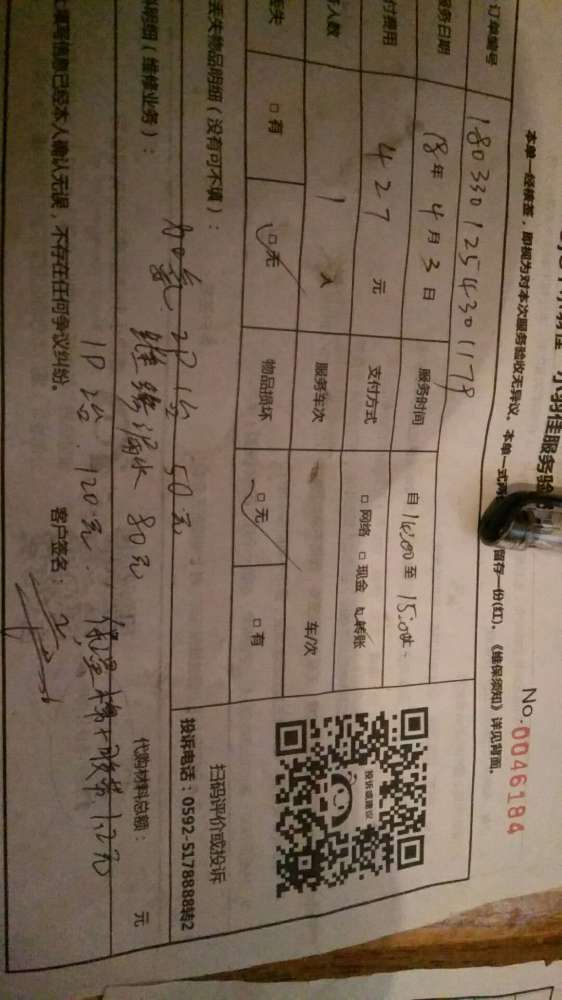 小羽佳服务验
No.0046184
本单一经核签，即视为对本次服务验收无异议。本单一式两
留存一份(红)。《维保须知》详见背面。
订单编号 1803301254301178
服务日期 18年4月3日 服务时间 自14:00至15:00
付费用 427元 支付方式 □网络 □现金 □转账
人数 1人 服务车次 车/次
丢失 □有 □无 物品损坏 □无 □有
丢失物品明细（没有可不填）：
明细（维修业务）：
加氟 2P 1台 50元
维修漏水 80元
1P 2台 120元 保温棉+胶带 12元
代购材料总额： 元
填写信息已经本人确认无误，不存在任何争议纠纷。 客户签名：
投诉或建议
扫码评价或投诉
投诉电话：0592-5178888转2